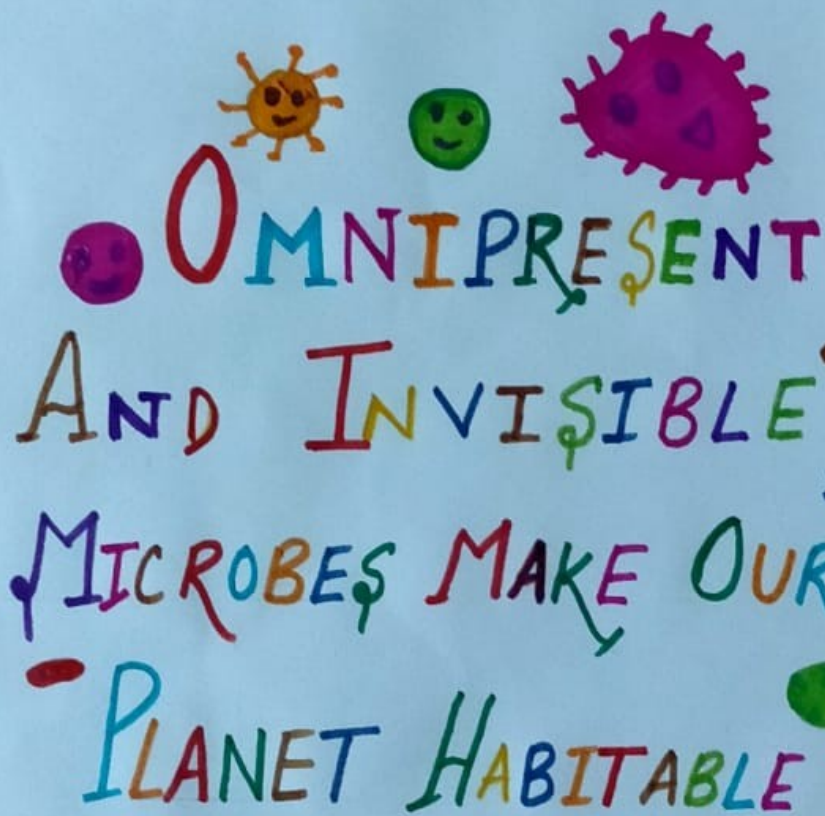 OMNIPRESENT
AND INVISIBLE
MICROBES MAKE OUR
PLANET HABITABLE